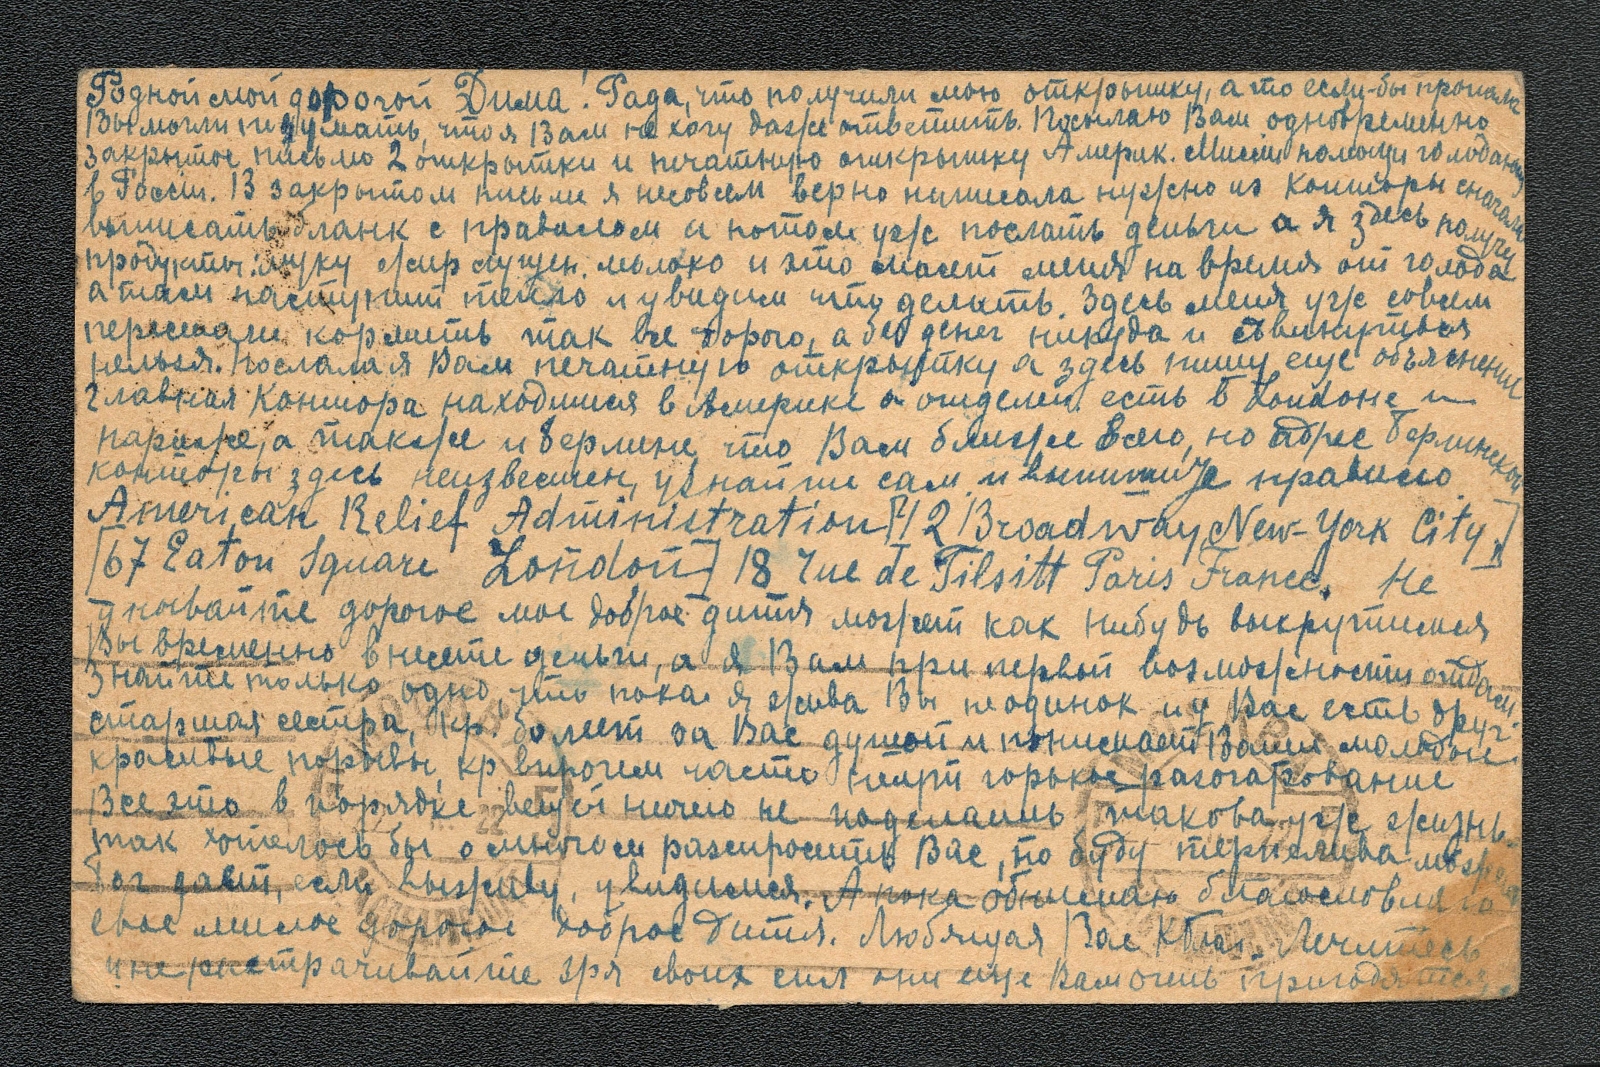 Родной мой дорогой Дима! Рада, что получили мою открытку, а то если-бы пропала
Вы могли подумать, что я Вам не хочу даже ответить. Посылаю Вам одновременно
закрытое письмо 2 открытки и печатную открытку Америк. Миссии помощи голодающ
в России. В закрытом письме я несовсем верно написала нужно из конторы сначала
выписать бланк с правилом и потом уже послать деньги а я здесь получу
продукты: муку жир сгущен. молоко и это спасет меня на время от голода
а там наступит тепло и увидим что делать. Здесь меня уже совсем
перестали кормить так все дорого, а без денег никуда и сдвинуться
нельзя. Послала я Вам печатную открытку а здесь пишу еще объяснения
Главная Контора находится в Америке а отделен. есть в Лондоне и
париже, а также и берлине что Вам ближе всего, но адрес берлинской
конторы здесь неизвестен, узнайте сам и выпишите правило
American Relief Administration [42 Broadway New-York City]
[67 Eaton Square London] 18 rue de Tilsitt Paris France. Не
унывайте дорогое мое доброе дитя может как нибудь выкрутимся
Вы временно внесете деньги, а я Вам при первой возможности отдам.
Знайте только одно что пока я жива Вы неодинок и у Вас есть друг-
старшая сестра, кр. болеет за Вас душой и понимает Ваши молодые
красивые порывы, кр впрочем часто терпят горькое разочарование
Все это в порядке вещей ничего не поделаешь такова уж жизнь.
так хотелось бы о многом разспросить Вас, но буду терпелива может
Бог даст, если выживу, увидимся. А пока обнимаю благословляю
свое милое дорогое доброе дитя. Любящая Вас Лечитесь
и не растрачивайте зря своих сил они еще Вам очень пригодятся